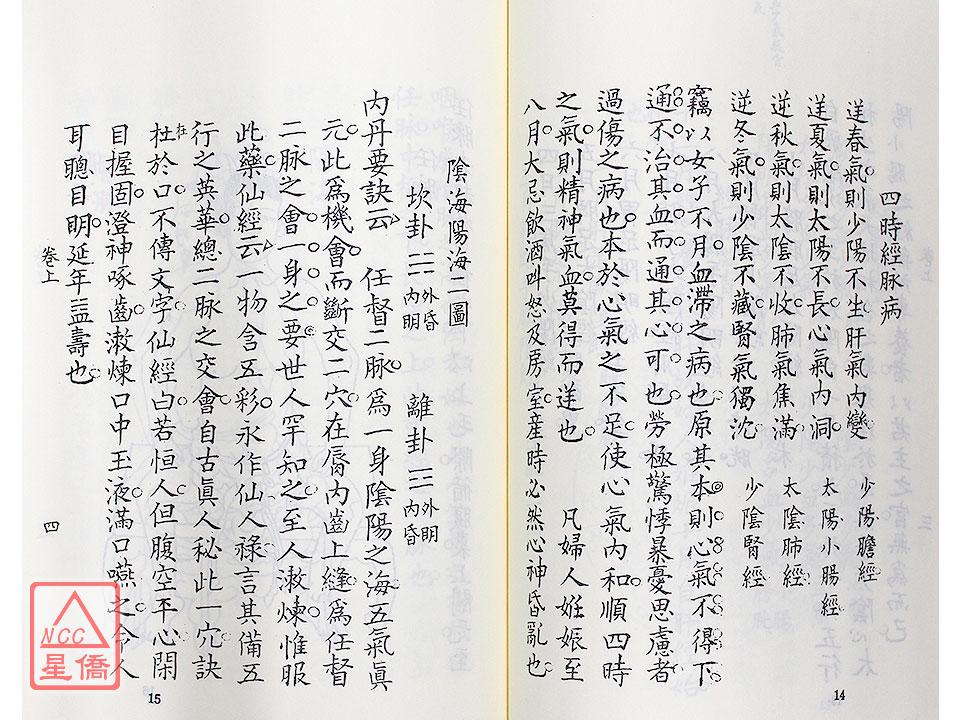 四時經脉病
逆春氣則少陽不生肝氣內變 少陽膽經
逆夏氣則太陽不長心氣內洞 太陽小腸經
逆秋氣則太陰不收肺氣焦滿 太陰肺經
逆冬氣則少陰不藏腎氣獨沈 少陰腎經
竊以女子不月血滯之病也原其本則心氣不得下
通不治其血而通其心可也勞極驚悸暴憂思慮者
過傷之病也本於心氣之不足使心氣內和順四時
之氣則精神氣血莫得而逆也 凡婦人姙娠至
八月大忌飲酒呌怒及房室産時必然心神昏亂也
14
陰海陽海二圖
坎卦 外昏內明 離卦 外明內昏
內丹要訣云 任督二脉爲一身陰陽之海五氣眞
元此爲機會而斷交二穴在脣內齒上縫爲任督
二脉之會一身之要世人罕知之至人漱煉惟服
此藥仙經云一物含五彩永作仙人祿言其備五
行之英華總二脉之交會自古眞人秘此一穴訣
在
杜於口不傳文字仙經白若恒人但腹空平心閑
目握固澄神啄齒漱煉口中玉液滿口嚥之令人
耳聰目明延年益壽也
卷上
四
15
NCC
星僑